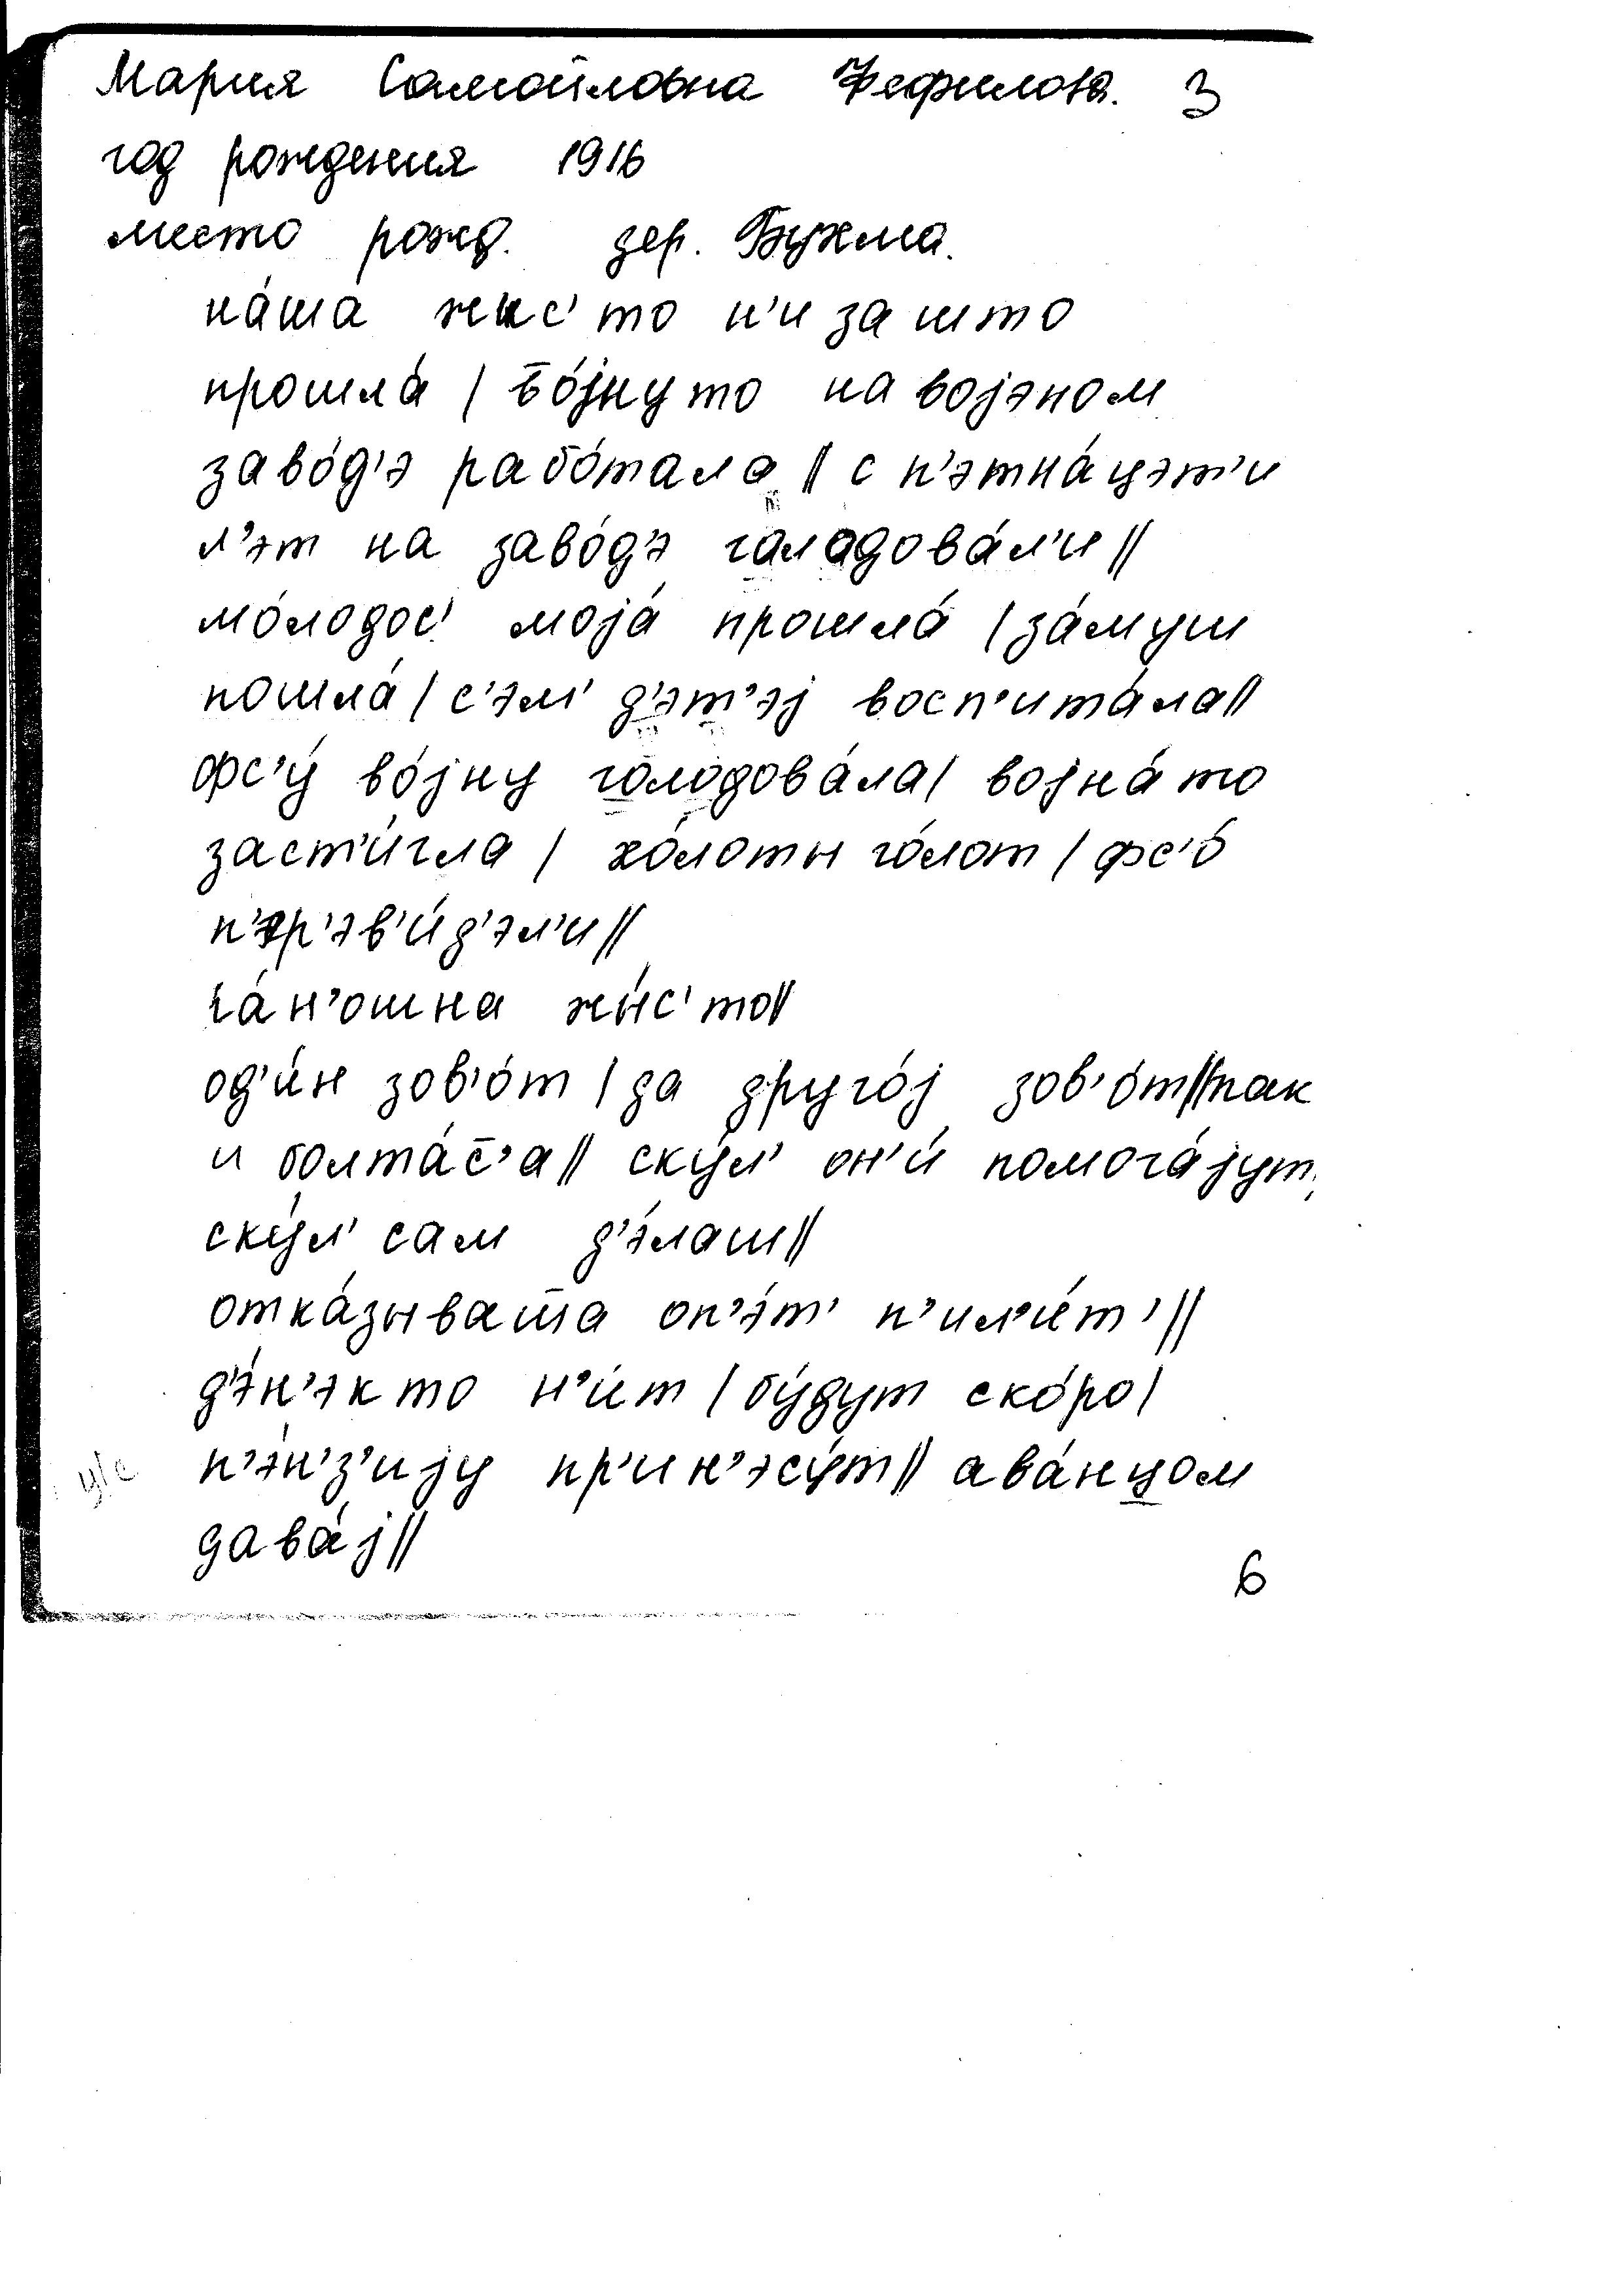 Мария Самойловна Фефилова. 3
год рождения 1916
место рожд. дер. Бухма.
на́ша жыс' то н'и за што
прошла́ / во̄́јну то на војэном
заво́д'э рабо́тала // с п'этна́цэт'и
л'эт на заво́д'э галадова́л'и //
мо́лодос' моја́ прошла́ / за́муш
пошла́ / с'эм' д'эт'эј восп'ита́ла //
фс'у́ во́јну голодова́ла / војна́ то
заст'и́гла / хо́лоты го́лот / фс'о́
п'эр'эв'и́д'эл'и //
га́н'ошна жы́с' то //
од'и́н зов'о́т / да друго́ј зов'о́т // так
и болта́с̄'а // ску́л' он'и́ помога́јут,
ску́л' сам д'э́лаш //
отка́зыват̄а оп'э́т' п'ил'и́т' //
д'э́н'эк то н'и́т / бу́дут ско́ро /
п'э́н'з'ију пр'ин'эсу́т // ава́нцом
дава́ј //
6